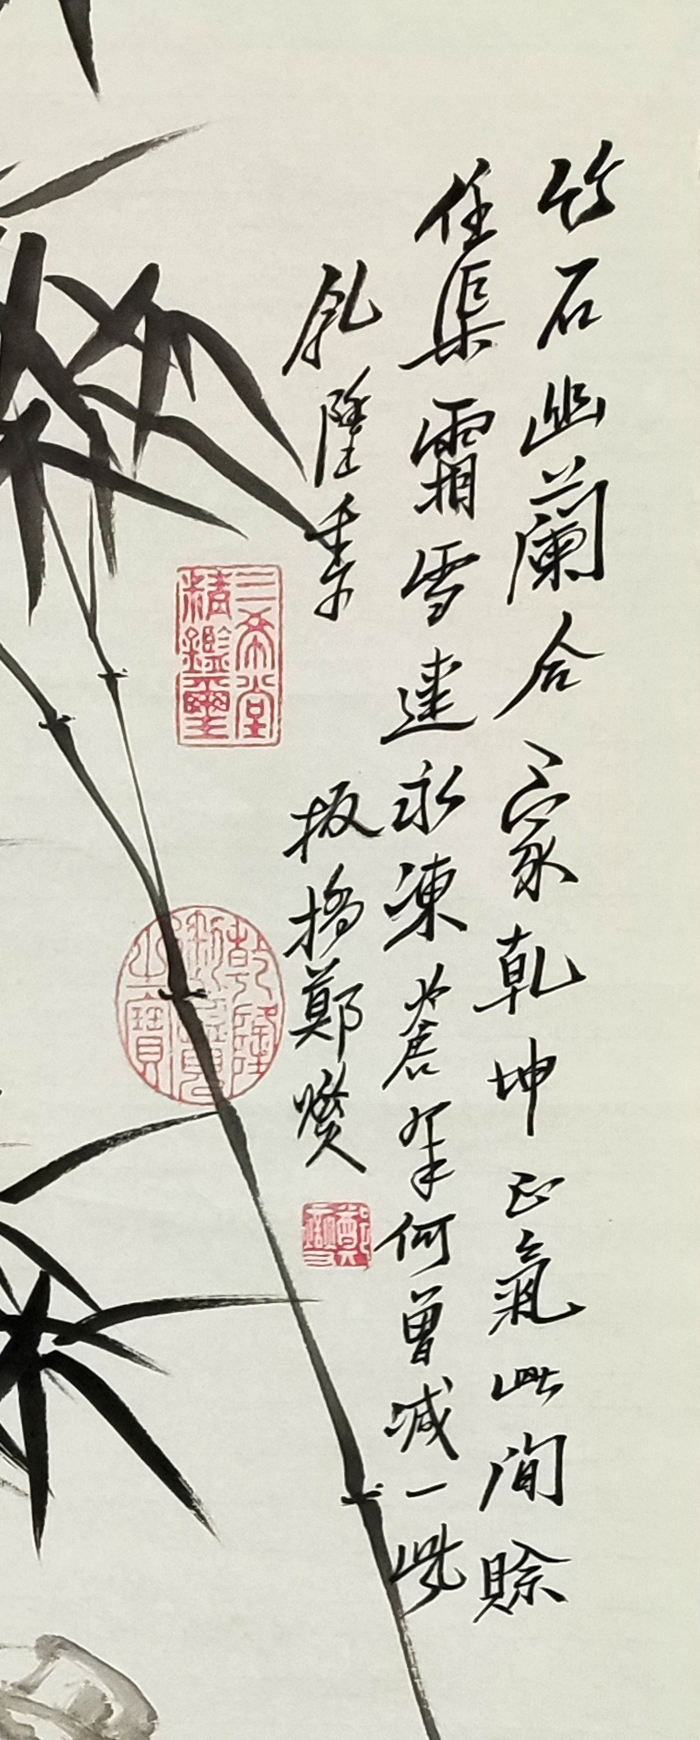 竹石幽蘭合一家乾坤正氣此間賒
任渠霜雪連冰凍蒼翠何曾減一些
乾隆季
板橋鄭燮
三希堂
精鑑璽
乾隆
御覽
之寶
鄭燮